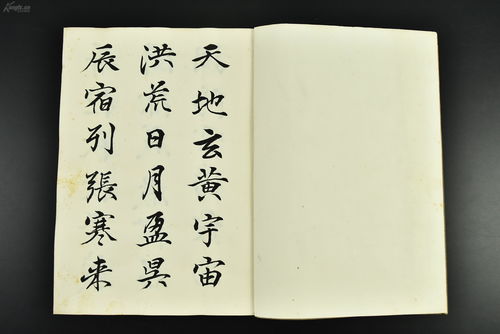 天地玄黄宇宙
洪荒日月盈昃
辰宿列張寒来